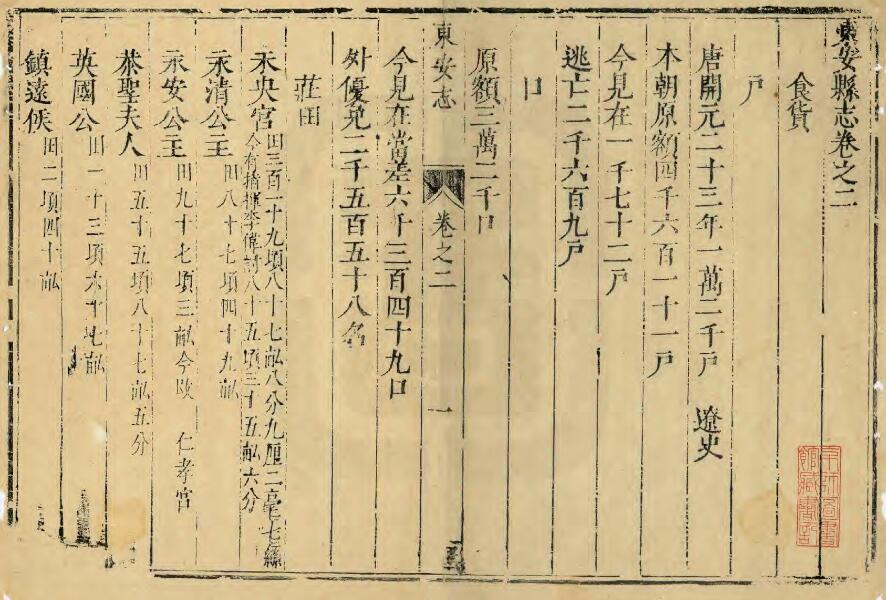 東安縣志卷之二
食貨
戶
唐開元二十三年一萬二千戶 遼史
本朝原額四千六百一十一戶
今見在一千七十二戶
逃亡二千六百九戶
口
原額三萬二千口
東安志 卷之二 一
今見在當差六千三百四十九口
外優免二千五百五十八名
莊田
未央宮 田三百一十九頃八十七畝八分九厘二毫七絲
今有指揮李偉討八十五頃三十五畝六分
永清公主 田八十七頃四十九畝
永安公主 田九十七頃三畝今改 仁孝宮
恭聖夫人 田五十五頃八十七畝五分
英國公 田一十三頃六十七畝
鎮遠侯 田二頃四十畝
京師圖書館藏書記